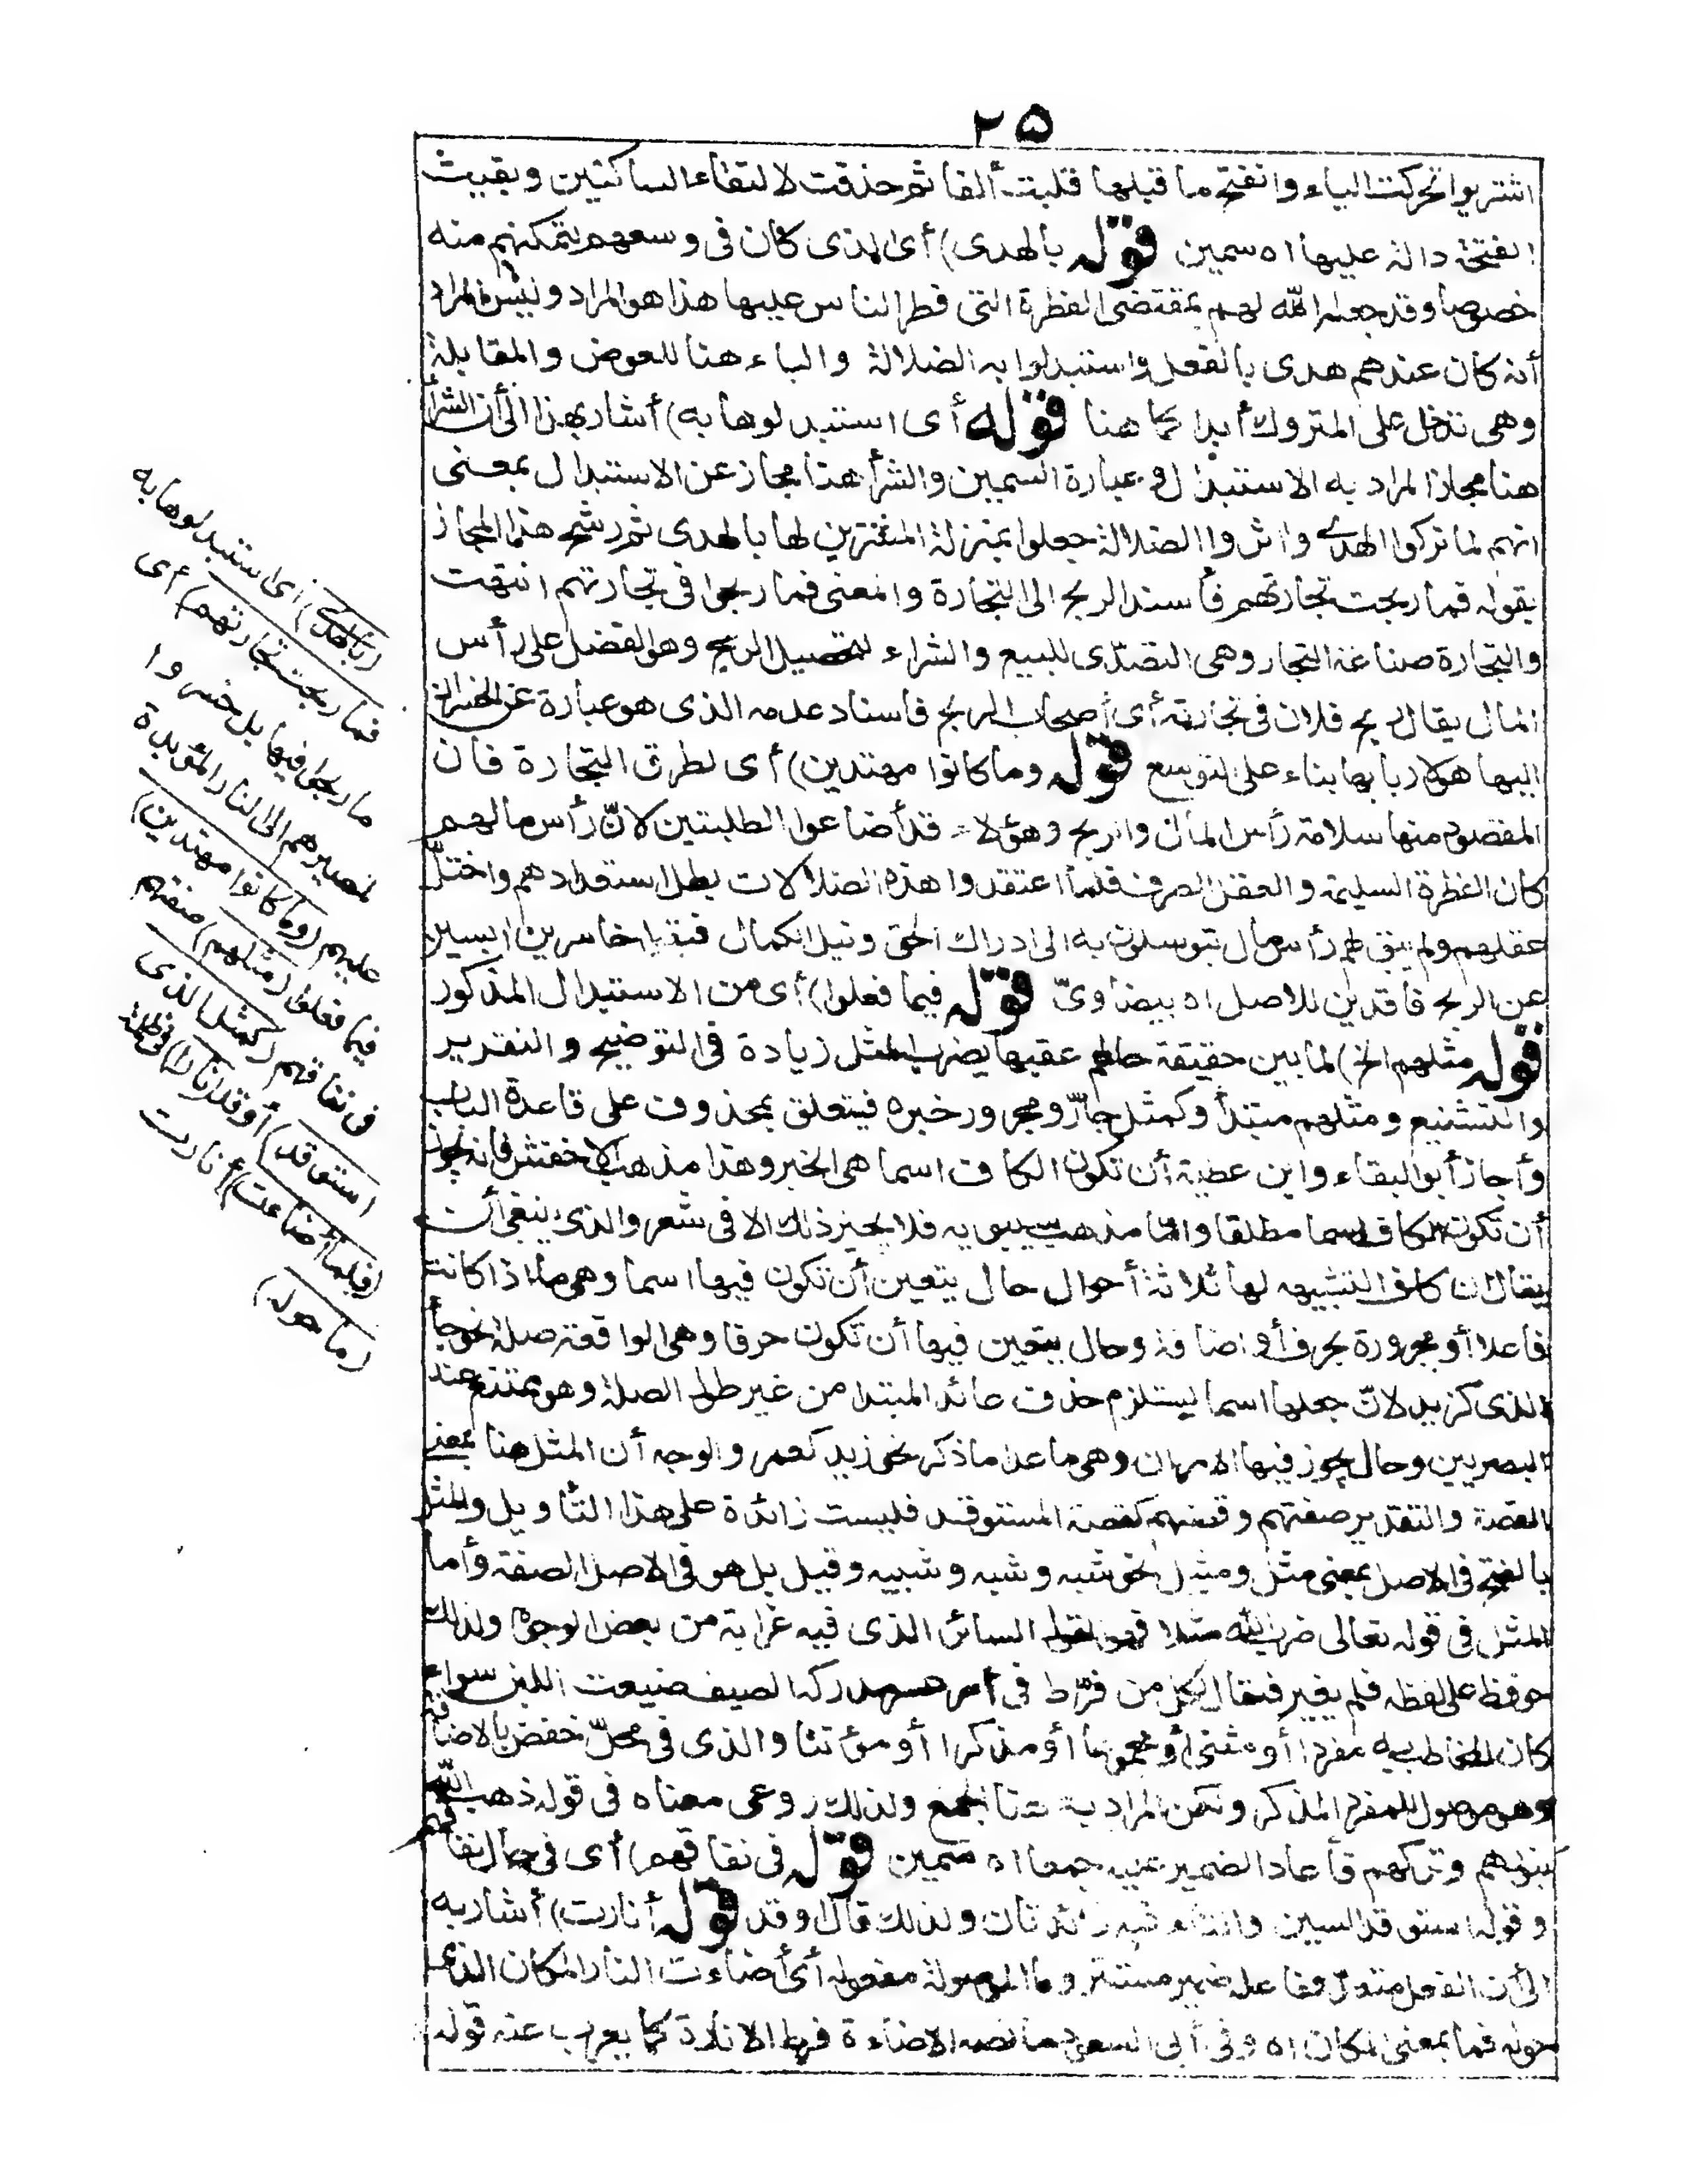 ٢٥
اشتريوا تحركت الياء وانفتح ما قبلها قلبت ألفا ثم حذفت لالتقاء الساكنين وبقيت
الفتحة دالة عليها اه سمين قوله بالهدى) أى الذى كان فى وسعهم بتمكنهم منه
خصوصا وقد جعله الله لهم بمقتضى الفطرة التى فطر الناس عليها هذا هو المراد وليس المراد
أنه كان عندهم هدى بالفعل واستبدلوا به الضلالة والباء هنا للعوض والمقابلة
وهى تدخل على المتروك أبدا كما هنا قوله أى استبدلوها به) أشار بهذا الى أن الشرأ
هنا مجاز المراد به الاستبدال وعبارة السمين والشرأ هنا مجاز عن الاستبدال بمعنى
انهم لما تركوا الهدى واثروا الضلالة جعلوا بمنزلة المشترين لها بالهدى ثم رشح هذا المجاز
بقوله فما ربحت تجارتهم فأسند الربح الى التجارة والمعنى فما ربحوا فى تجارتهم انتهت
والتجارة صناعة التجار وهى التصدّى للبيع والشراء لتحصيل الربح وهو الفضل على رأس
المال يقال ربح فلان فى تجارته أى أصحاب الربح فاسناد عدمه الذى هو عبارة عن الخسران
اليها هو لاربابها بناء على التوسع قوله وما كانوا مهتدين) أى لطرق التجارة فان
المقصود منها سلامة رأس المال والربح وهؤلاء قد أضاعوا الطلبتين لانّ رأس مالهم
كان الفطرة السليمة والعقل الصرف فلما اعتقدوا هذه الضلالات بطل استعدادهم واختلّ
عقلهم ولم يبق لهم رأس مال يتوسلون به الى ادراك الحق ونيل الكمال فبقوا خاسرين ايسين
عن الربح فاقدين للاصل اه بيضاوىّ قوله فيما فعلوا) أى من الاستبدال المذكور
قوله مثلهم الخ) لما بين حقيقة حالهم عقبها بضرب المثل زيادة فى التوضيح والتقرير
والتشنيع ومثلهم مبتدأ وكمثل جارّ ومجرور خبره فيتعلق بمحذوف على قاعدة الباب
وأجاز أبو البقاء وابن عطية أن تكون الكاف اسما هى الخبر وهذا مذهب الاخفش فانه يجوز
أن تكون الكاف اسما مطلقا وامّا مذهب سيبويه فلا يجيز ذلك الا فى شعر والذى ينبغى أن
يقال ان كاف التشبيه لها ثلاثة أحوال حال يتعين أن تكون فيها اسما وهى ما اذا كانت
فاعلا أو مجرورة بحرف أو اضافة وحال يتعين فيها أن تكون حرفا وهى الواقعة صلة نحو جأ
الذى كزيد لانّ جعلها اسما يستلزم حذف عائد المبتدا من غير طول الصلة وهو ممتنع عند
البصريين وحال يجوز فيها الامران وهى ما عدا ما ذكر نحو زيد كعمرو والوجه أن المثل هنا بمعنى
القصة والتقدير صفتهم وقصتهم كقصة المستوقد فليست زائدة على هذا التأويل والمثل
بالفتح فى الاصل بمعنى مثل ومثيل نحو شبه وشبه وشبيه وقيل بل هو فى الاصل الصفة وأما
المثل فى قوله تعالى ضرب الله مثلا فهو القول السائر الذى فيه غرابة من بعض الوجوه ولذلك
حوفظ على لفظه فلم يغير فيقال لكل من فرّط فى أمر عسر مدركه الصيف ضيعت اللبن سواء
كان المخاطب به مفردا أو مثنى أو مجموعا أو مذكرا أو مؤنثا والذى فى محلّ خفض بالاضافة
وهو موصول للمفرد المذكر ولكن المراد به هنا الجمع ولذلك روعى معناه فى قوله ذهب الله
بنورهم وتركهم فأعاد الضمير عليه جمعا اه سمين قوله فى نفاقهم) أى فى حال نفاقهم
وقوله استوقد السين والتاء فيه زائدتان ولذلك قال أوقد قوله أنارت) أشار به
الى أن الفعل متعدّ وفاعله ضمير مستتر وما الموصولة مفعوله أى أضاءت النار المكان الذى
حوله فما بمعنى المكان اه وفى أبى السعود ما نصه الاضاءة فرط الانارة كما يعرب عنه قوله
(بالهدى) أى استبدلوها به
فما ربحت تجارتهم) أى
ما ربحوا فيها بل خسروا
لمصيرهم الى النار المؤبدة
عليهم (وما كانوا مهتدين)
فيما فعلوا (مثلهم) صفتهم
فى نفاقهم (كمثل الذى
استوقد) أوقد (نارا) فى ظلمة
(فلما أضاءت) أنارت
(ما حوله)